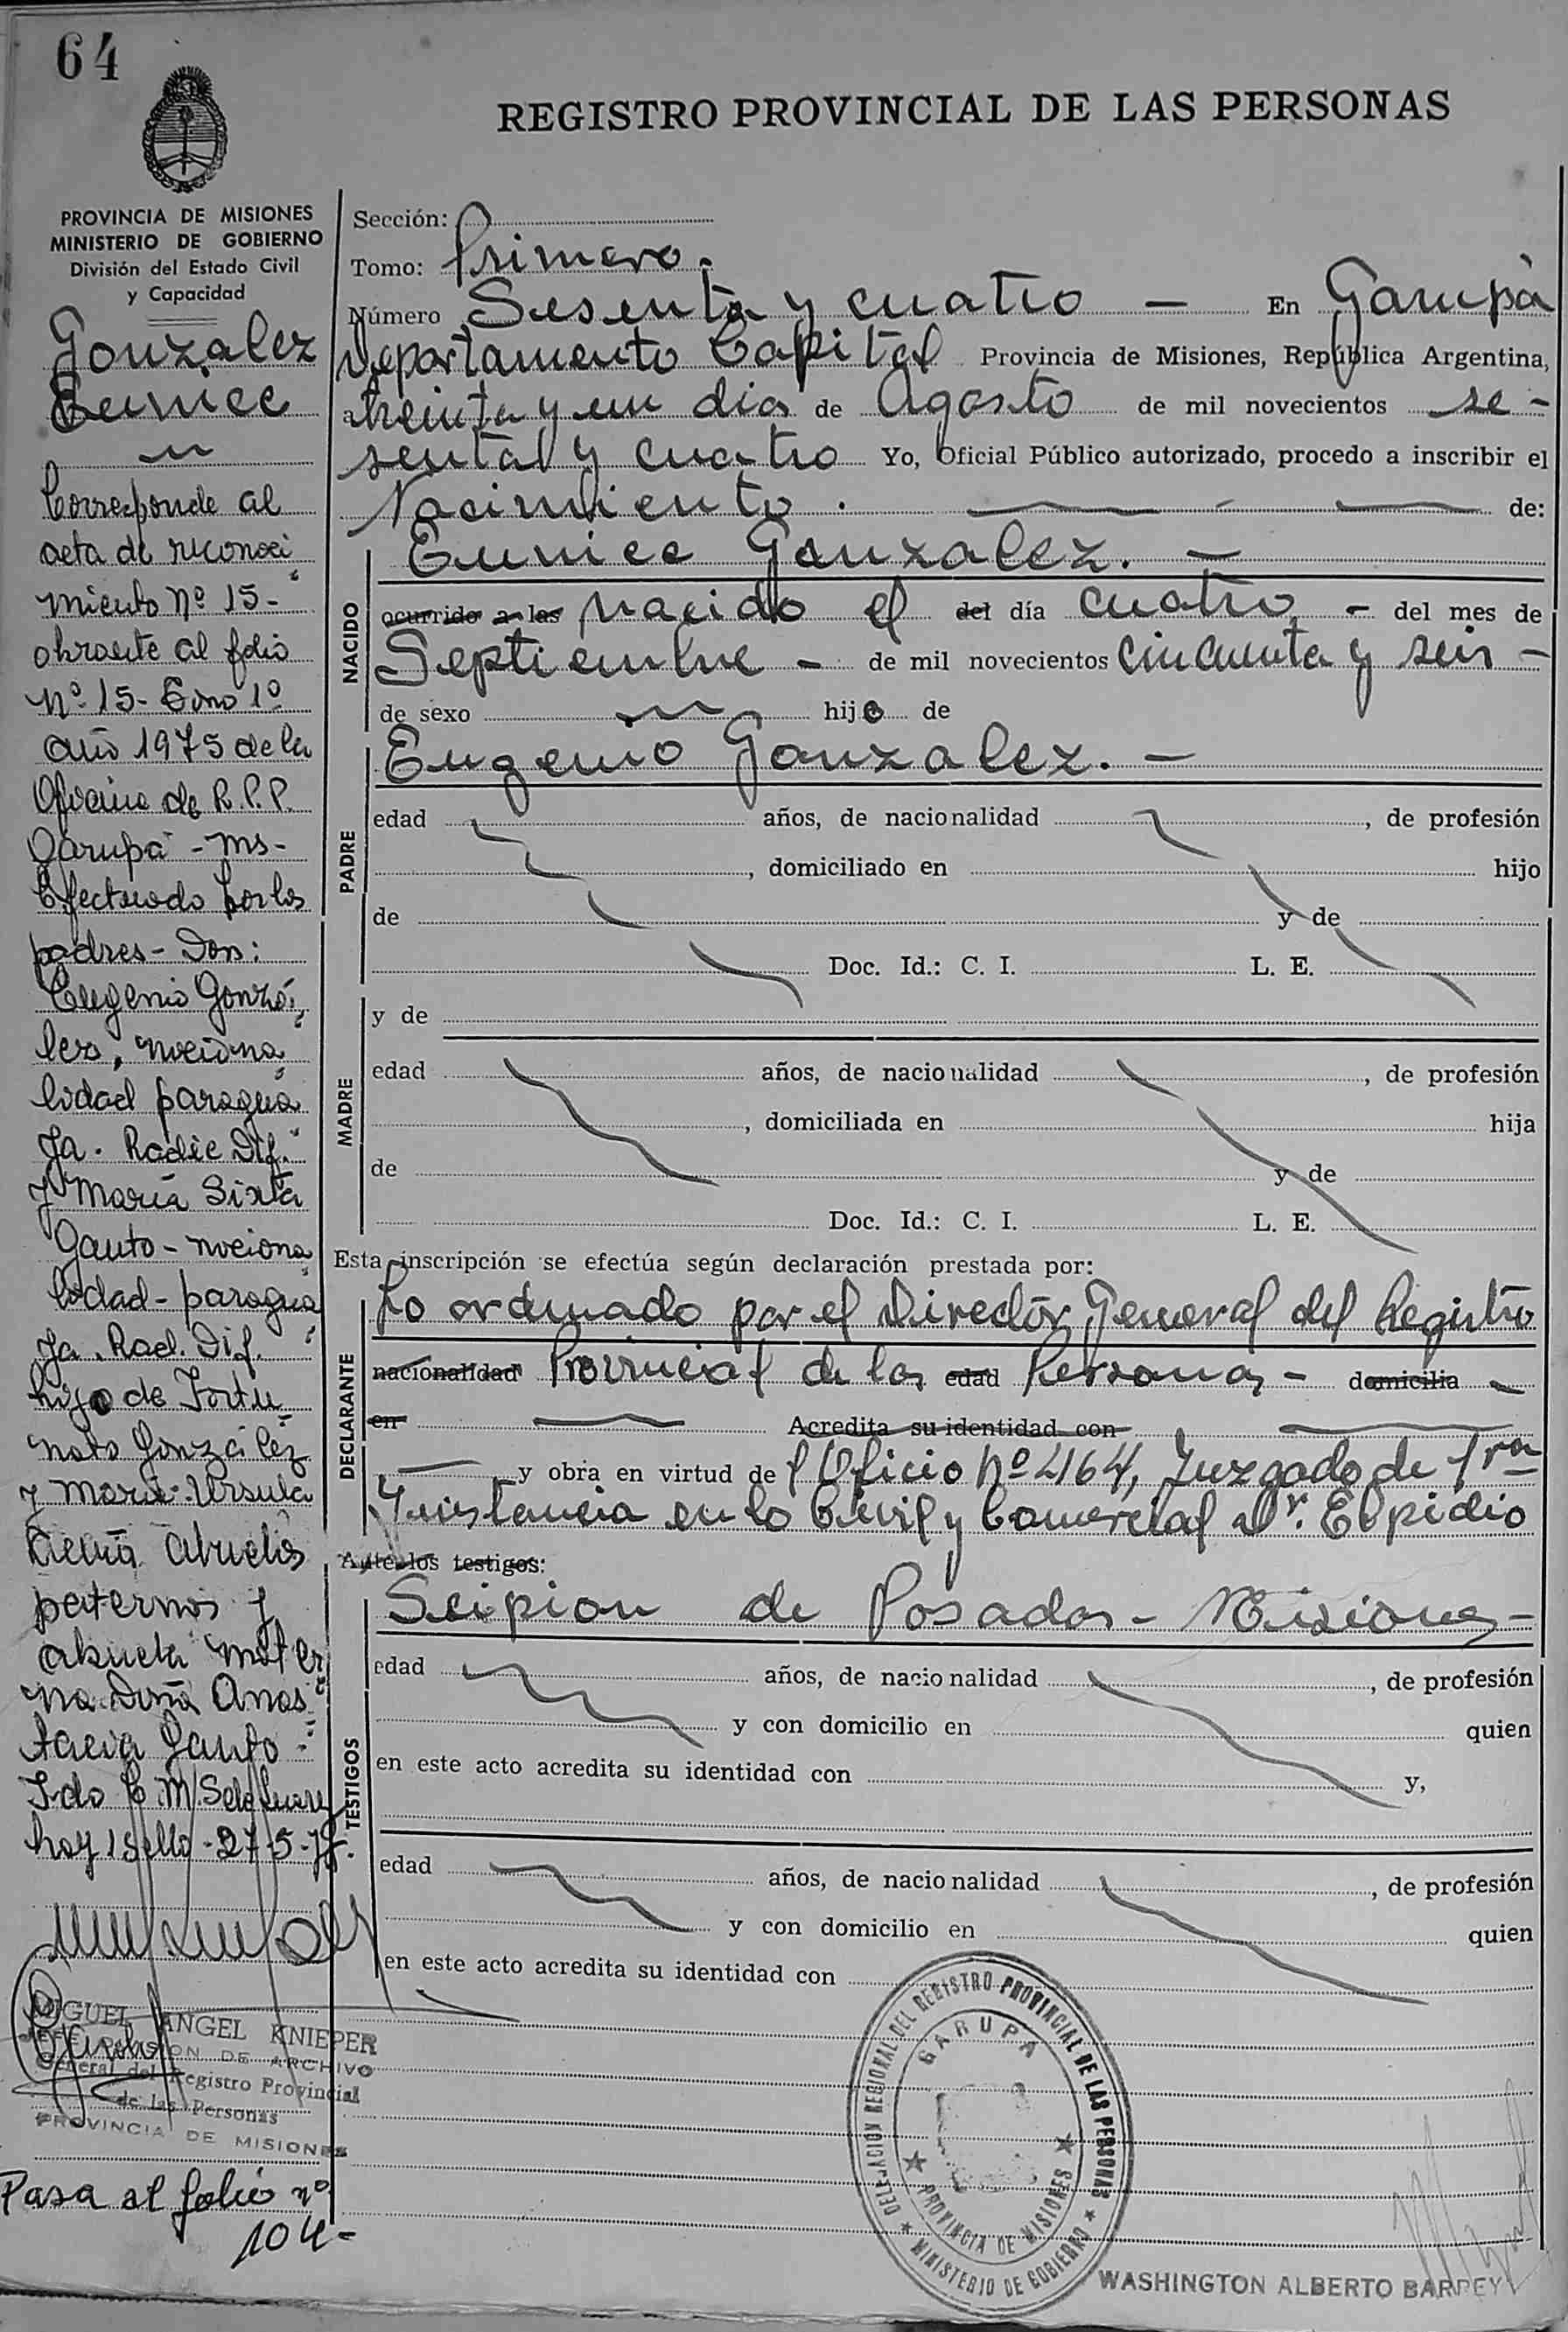 64
REGISTRO PROVINCIAL DE LAS PERSONAS
PROVINCIA DE MISIONES
MINISTERIO DE GOBIERNO
División del Estado Civil
y Capacidad
Gonzalez
Eunice
Corresponde al
acta de reconoci
miento nº 15-
obrante al folio
nº 15- Tomo 1º
año 1975 de la
Oficina de R.P.P.
Garupá - Ms-
Efectuado por los
padres- Don:
Eugenio Gonzá
lez, naciona
lidad paragua
ya. Radic Dif.
y María Sixta
Gauto - naciona
lidad- paragua
ya. Rad. Dif.
hijo de Fortu
nato González
y María Ursula
abuelos
paternos y
abuela mater
na Doña Anas
tacia Gauto
hoy 1 sello - 27-5-
MIGUEL ANGEL KNIEPER
DIVISION DE ARCHIVO
General del Registro Provincial
de las Personas
PROVINCIA DE MISIONES
Pasa al folio nº
104-
Sección:
Tomo: Primero.
Número Sesenta y cuatro — En Garupá
Departamento Capital Provincia de Misiones, República Argentina,
a treinta y un dias de Agosto de mil novecientos se-
senta y cuatro Yo, Oficial Público autorizado, procedo a inscribir el
Nacimiento . de:
Eunice Gonzalez. —
NACIDO
ocurrido a las nacido el del día cuatro - del mes de
Septiembre - de mil novecientos cincuenta y seis -
de sexo hijo de
Eugenio Gonzalez. —
PADRE
edad años, de nacionalidad , de profesión
, domiciliado en hijo
de y de
Doc. Id.: C. I. L. E.
y de
MADRE
edad años, de nacionalidad , de profesión
, domiciliada en hija
de y de
Doc. Id.: C. I. L. E.
Esta inscripción se efectúa según declaración prestada por:
DECLARANTE
Lo ordenado por el Director General del Registro
nacionalidad Provincial de las edad Personas - domicilia
en Acredita su identidad con
y obra en virtud de Oficio Nº 2164, Juzgado de 1ra
Instancia en lo Civil y Comercial Dr. Elpidio
Ante los testigos:
Scipion de Posadas - Misiones -
TESTIGOS
edad años, de nacionalidad , de profesión
y con domicilio en quien
en este acto acredita su identidad con y,
edad años, de nacionalidad , de profesión
y con domicilio en quien
en este acto acredita su identidad con
DELEGACION REGIONAL DEL REGISTRO PROVINCIAL DE LAS PERSONAS
GARUPA
PROVINCIA DE MISIONES
MINISTERIO DE GOBIERNO
WASHINGTON ALBERTO BARREY